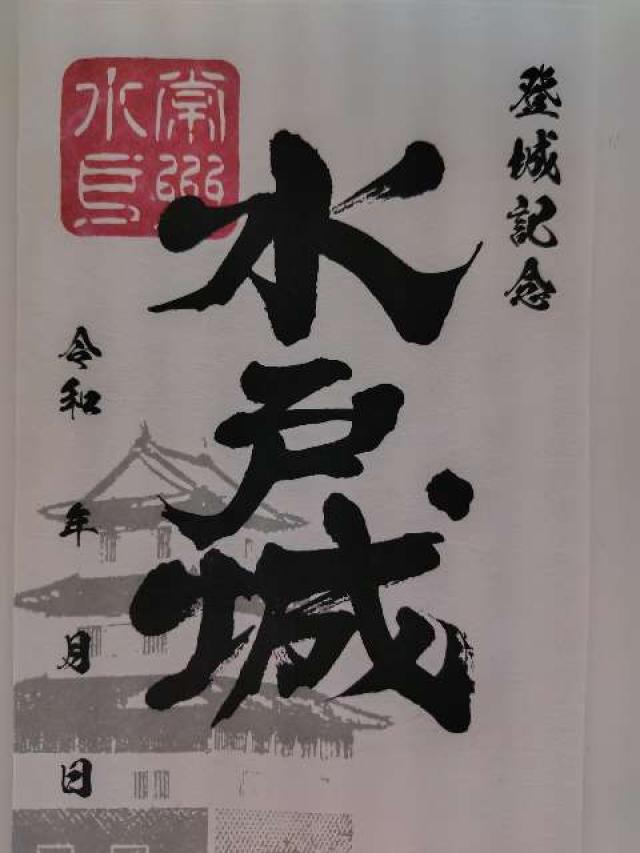 登城記念
水戸城
常州水戸
令和 年 月 日